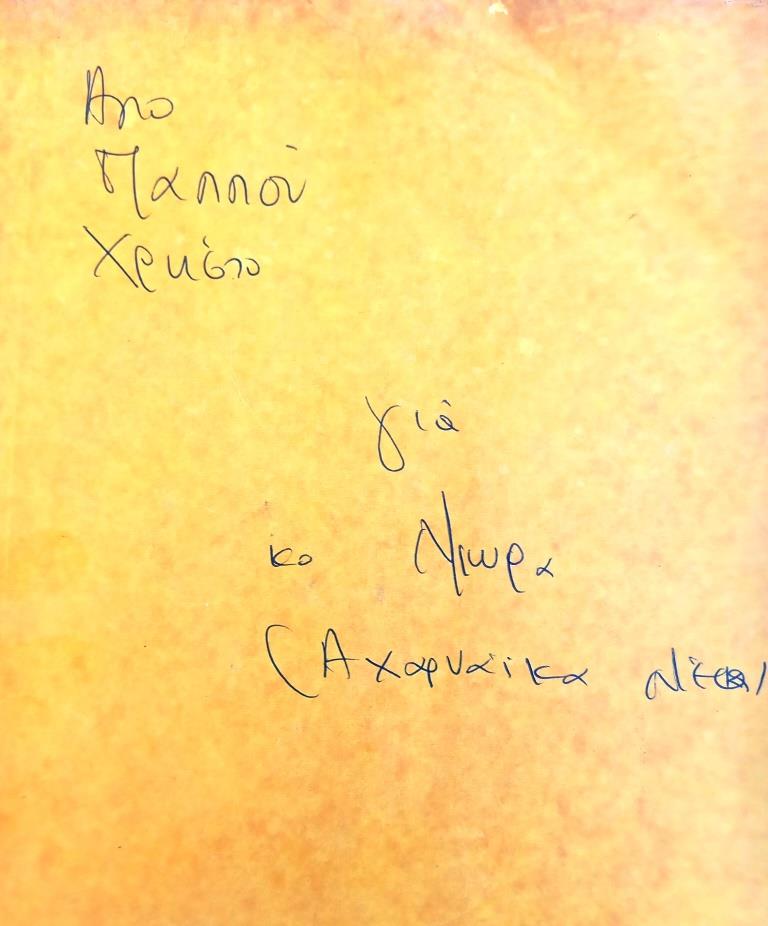 Απο
Παππού
Χρήστο
γιά
κο Νιωρα
(Αχαρναϊκα